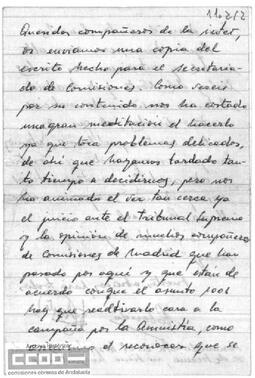 11.2/2
Queridos compañeros de la
os enviamos una copia del
escrito hecho para el secretaria-
do de comisiones. Como vereis
por su contenido nos ha costado
una gran meditación el hacerlo
ya que toca problemas delicados,
de ahi que hayamos tardado tan-
to tiempo a decidirnos, pero nos
ha animado el ver tan cerca ya
el juicio ante el Tribunal Supremo
y la opinión de muchos compañeros
de Comisiones de Madrid que han
pasado por aquí y que están de
acuerdo con que el asunto 1001
hay que reactivarlo cara a la
campaña por la Amnistía, como
el reconocer que se
ccoo
comisiones obreras de Andalucía